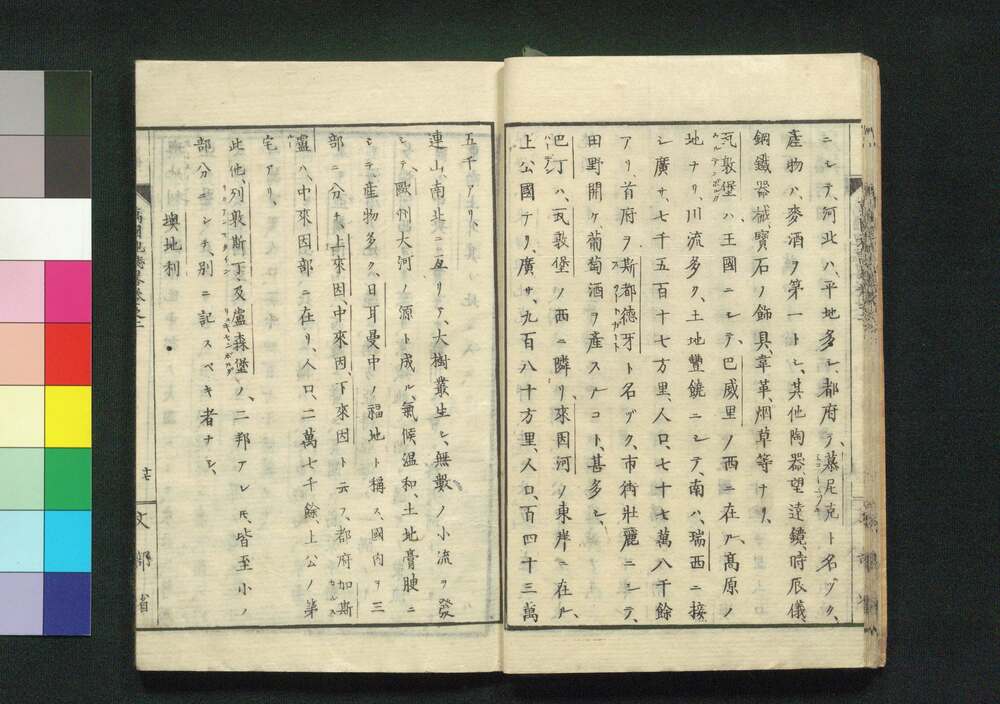 ニシテ、河北ハ、平地多シ、都府ヲ、慕尼克ト名ヅク、
產物ハ、麥酒ヲ第一トシ、其他陶器、望遠鏡、時辰儀、
鋼鐵器械、寶石ノ飾具、韋革、烟草等ナリ、
瓦敦堡ハ王國ニシテ、巴威里ノ西ニ在ル、高原ノ
地ナリ、川流多ク、土地豐饒ニシテ、南ハ、瑞西ニ接
シ、廣サ、七千五百十七方里、人口、七十七萬八千餘
アリ、首府ヲ、斯都德牙ト名ヅク、市街壯麗ニシテ、
田野開ケ、葡萄酒ヲ産スルコト、甚多シ、
巴丁ハ、瓦敦堡ノ西ニ隣リ、來因河ノ東岸ニ在ル、
上公國ナリ、廣サ、九百八十方里、人口、百四十三萬
五千アリ、
連山、南北ニ亙リテ、大樹叢生シ、無數ノ小流ヲ發
シテ、歐州大河ノ源ト成ル、氣候温和、土地膏腴ニ
シテ、產物多ク、日耳曼中ノ福地ト稱ス、國内ヲ三
部ニ分チ、上來因、中來因、下來因ト云フ、都府加斯
盧ハ、中來因部ニ在リ、人口、二萬七千餘、上公ノ第
宅アリ、
此他、列敦斯丁、及盧森堡ノ、二邦アレ𪜈、皆至小ノ
部分ニシテ、別ニ記スベキ者ナシ、
墺地利
廿
文部省